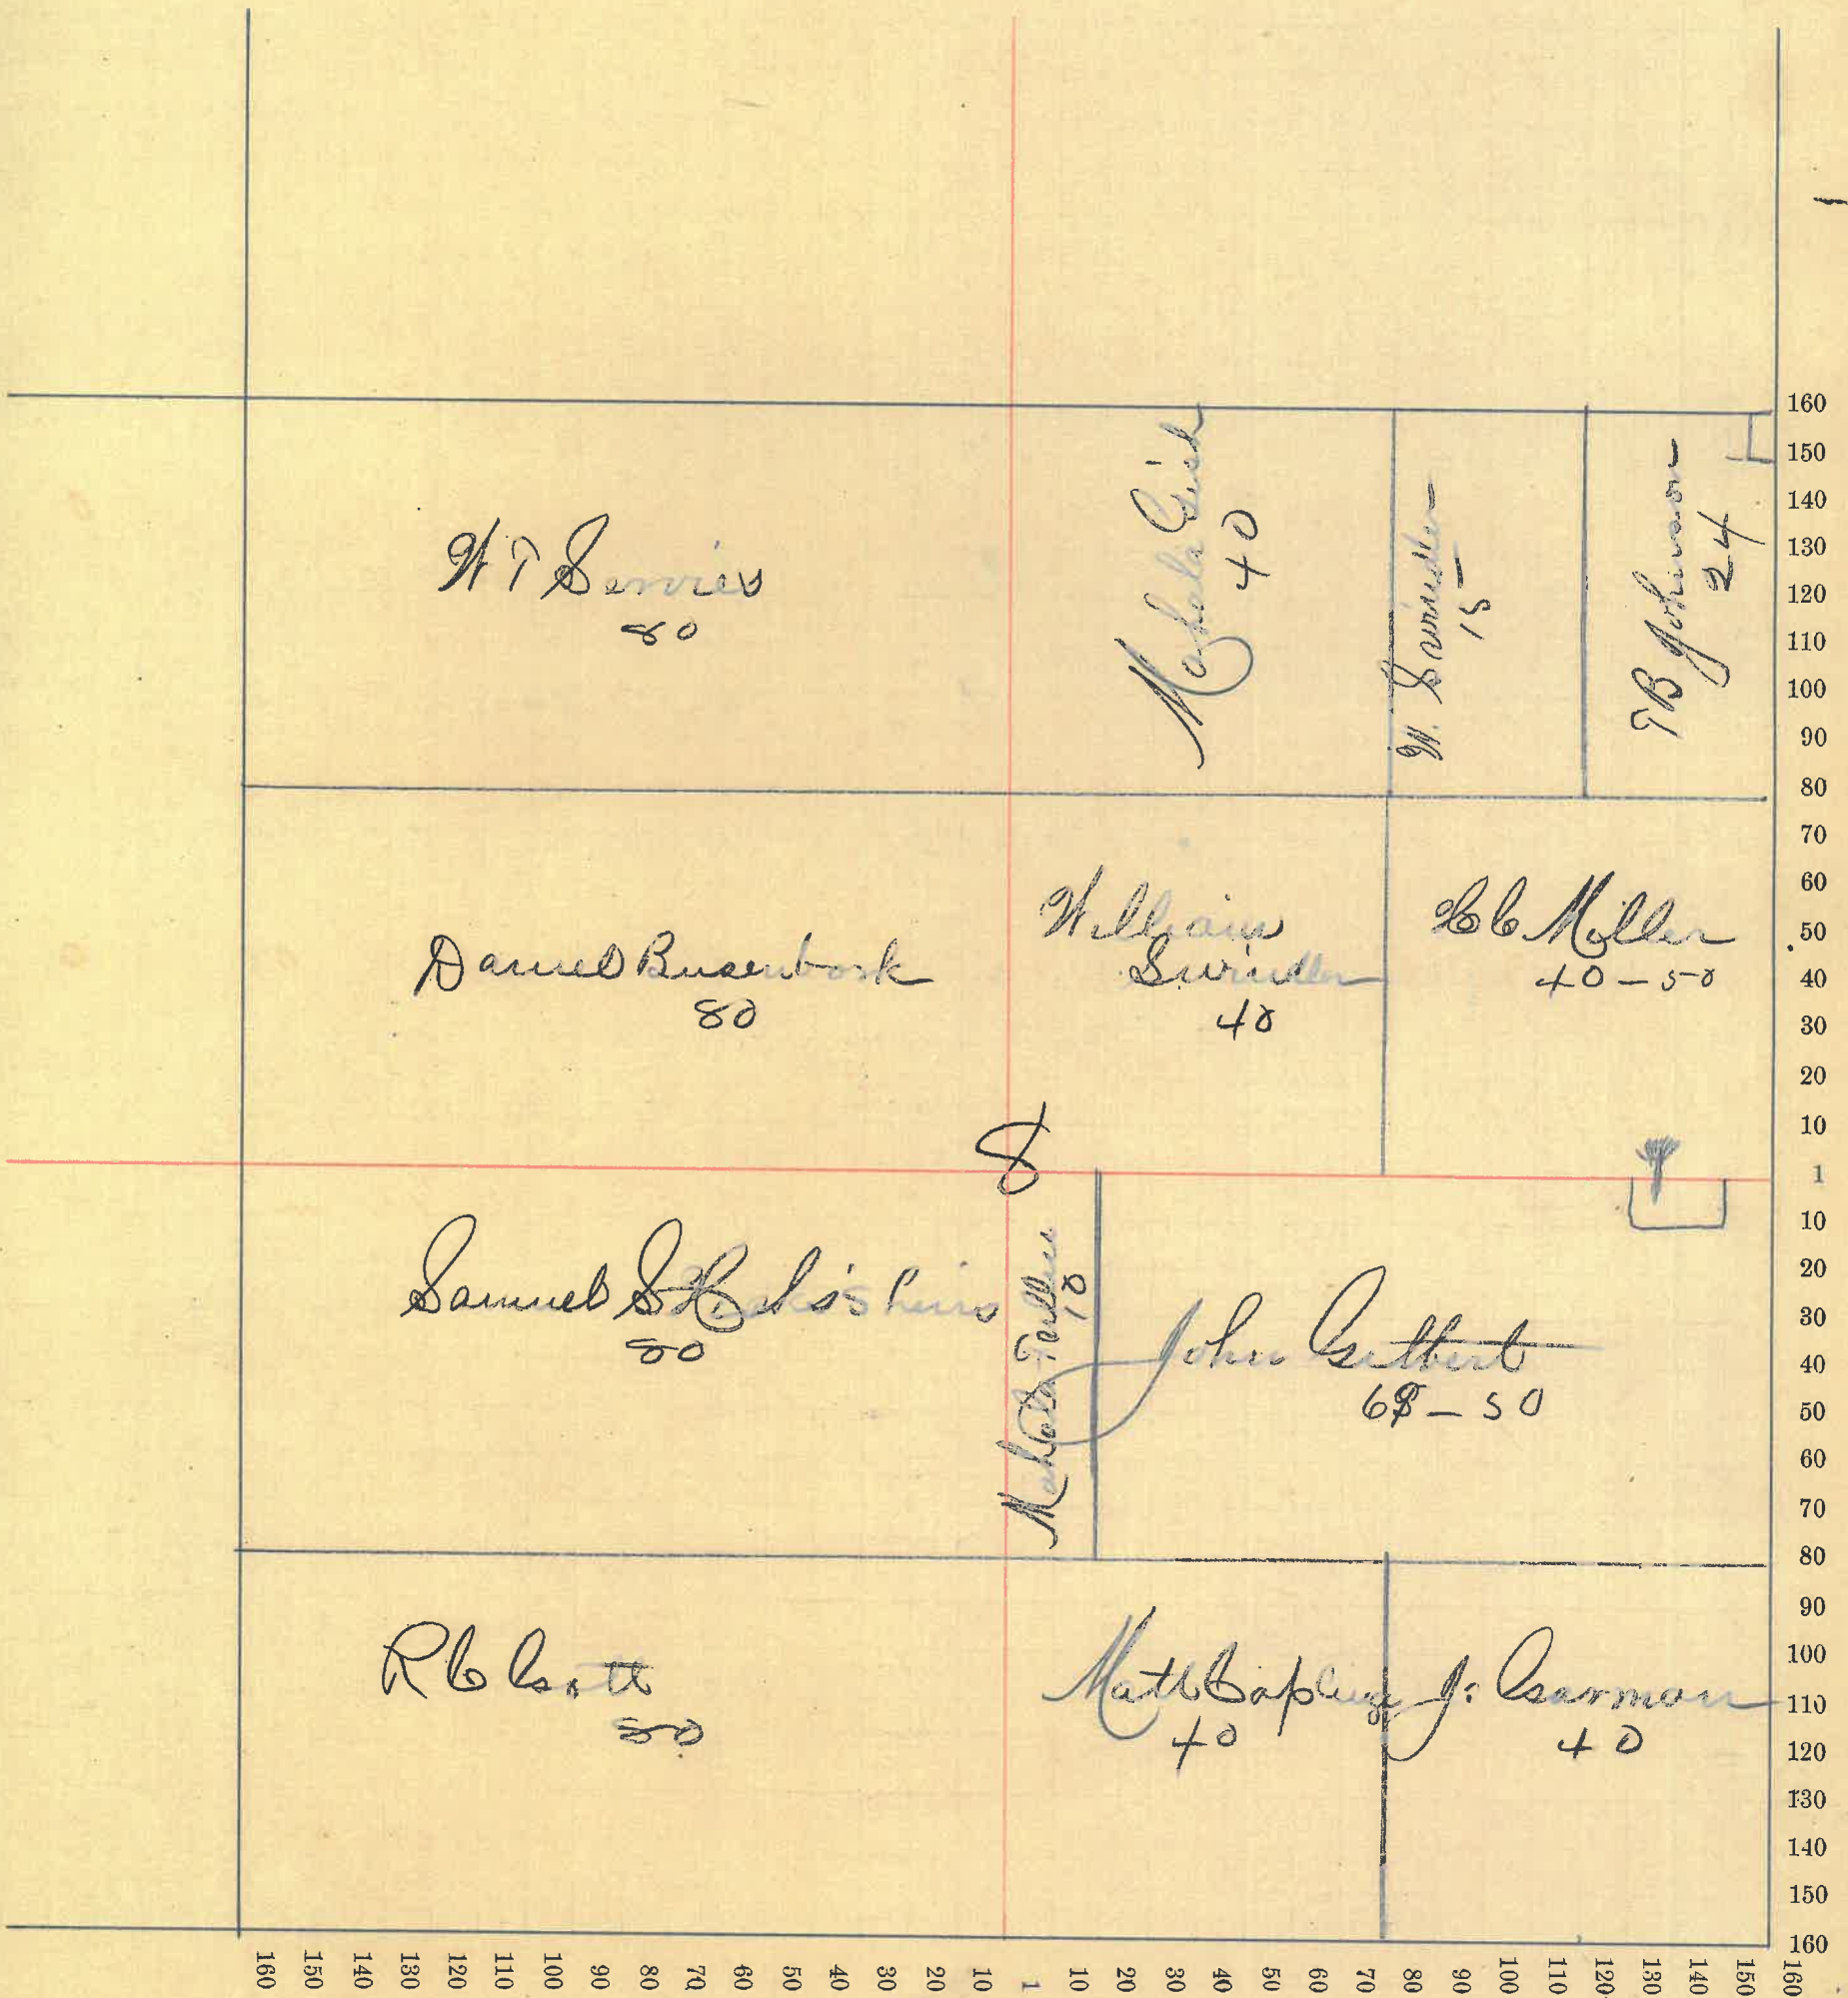 W T Servies
80
Mahala Gish
40
W. Swindler
15
T B Johnson
24
Daniel Busenbark
80
William
Swindler
40
H C Miller
40 - 50
8
Samuel S
80
Mahala
10
John Gilbert
68 - 50
R C
80
Matt
40
J. Garman
40
160
150
140
130
120
110
100
90
80
70
60
50
40
30
20
10
1
10
20
30
40
50
60
70
80
90
100
110
120
130
140
150
160
160 150 140 130 120 110 100 90 80 70 60 50 40 30 20 10 1 10 20 30 40 50 60 70 80 90 100 110 120 130 140 150 160